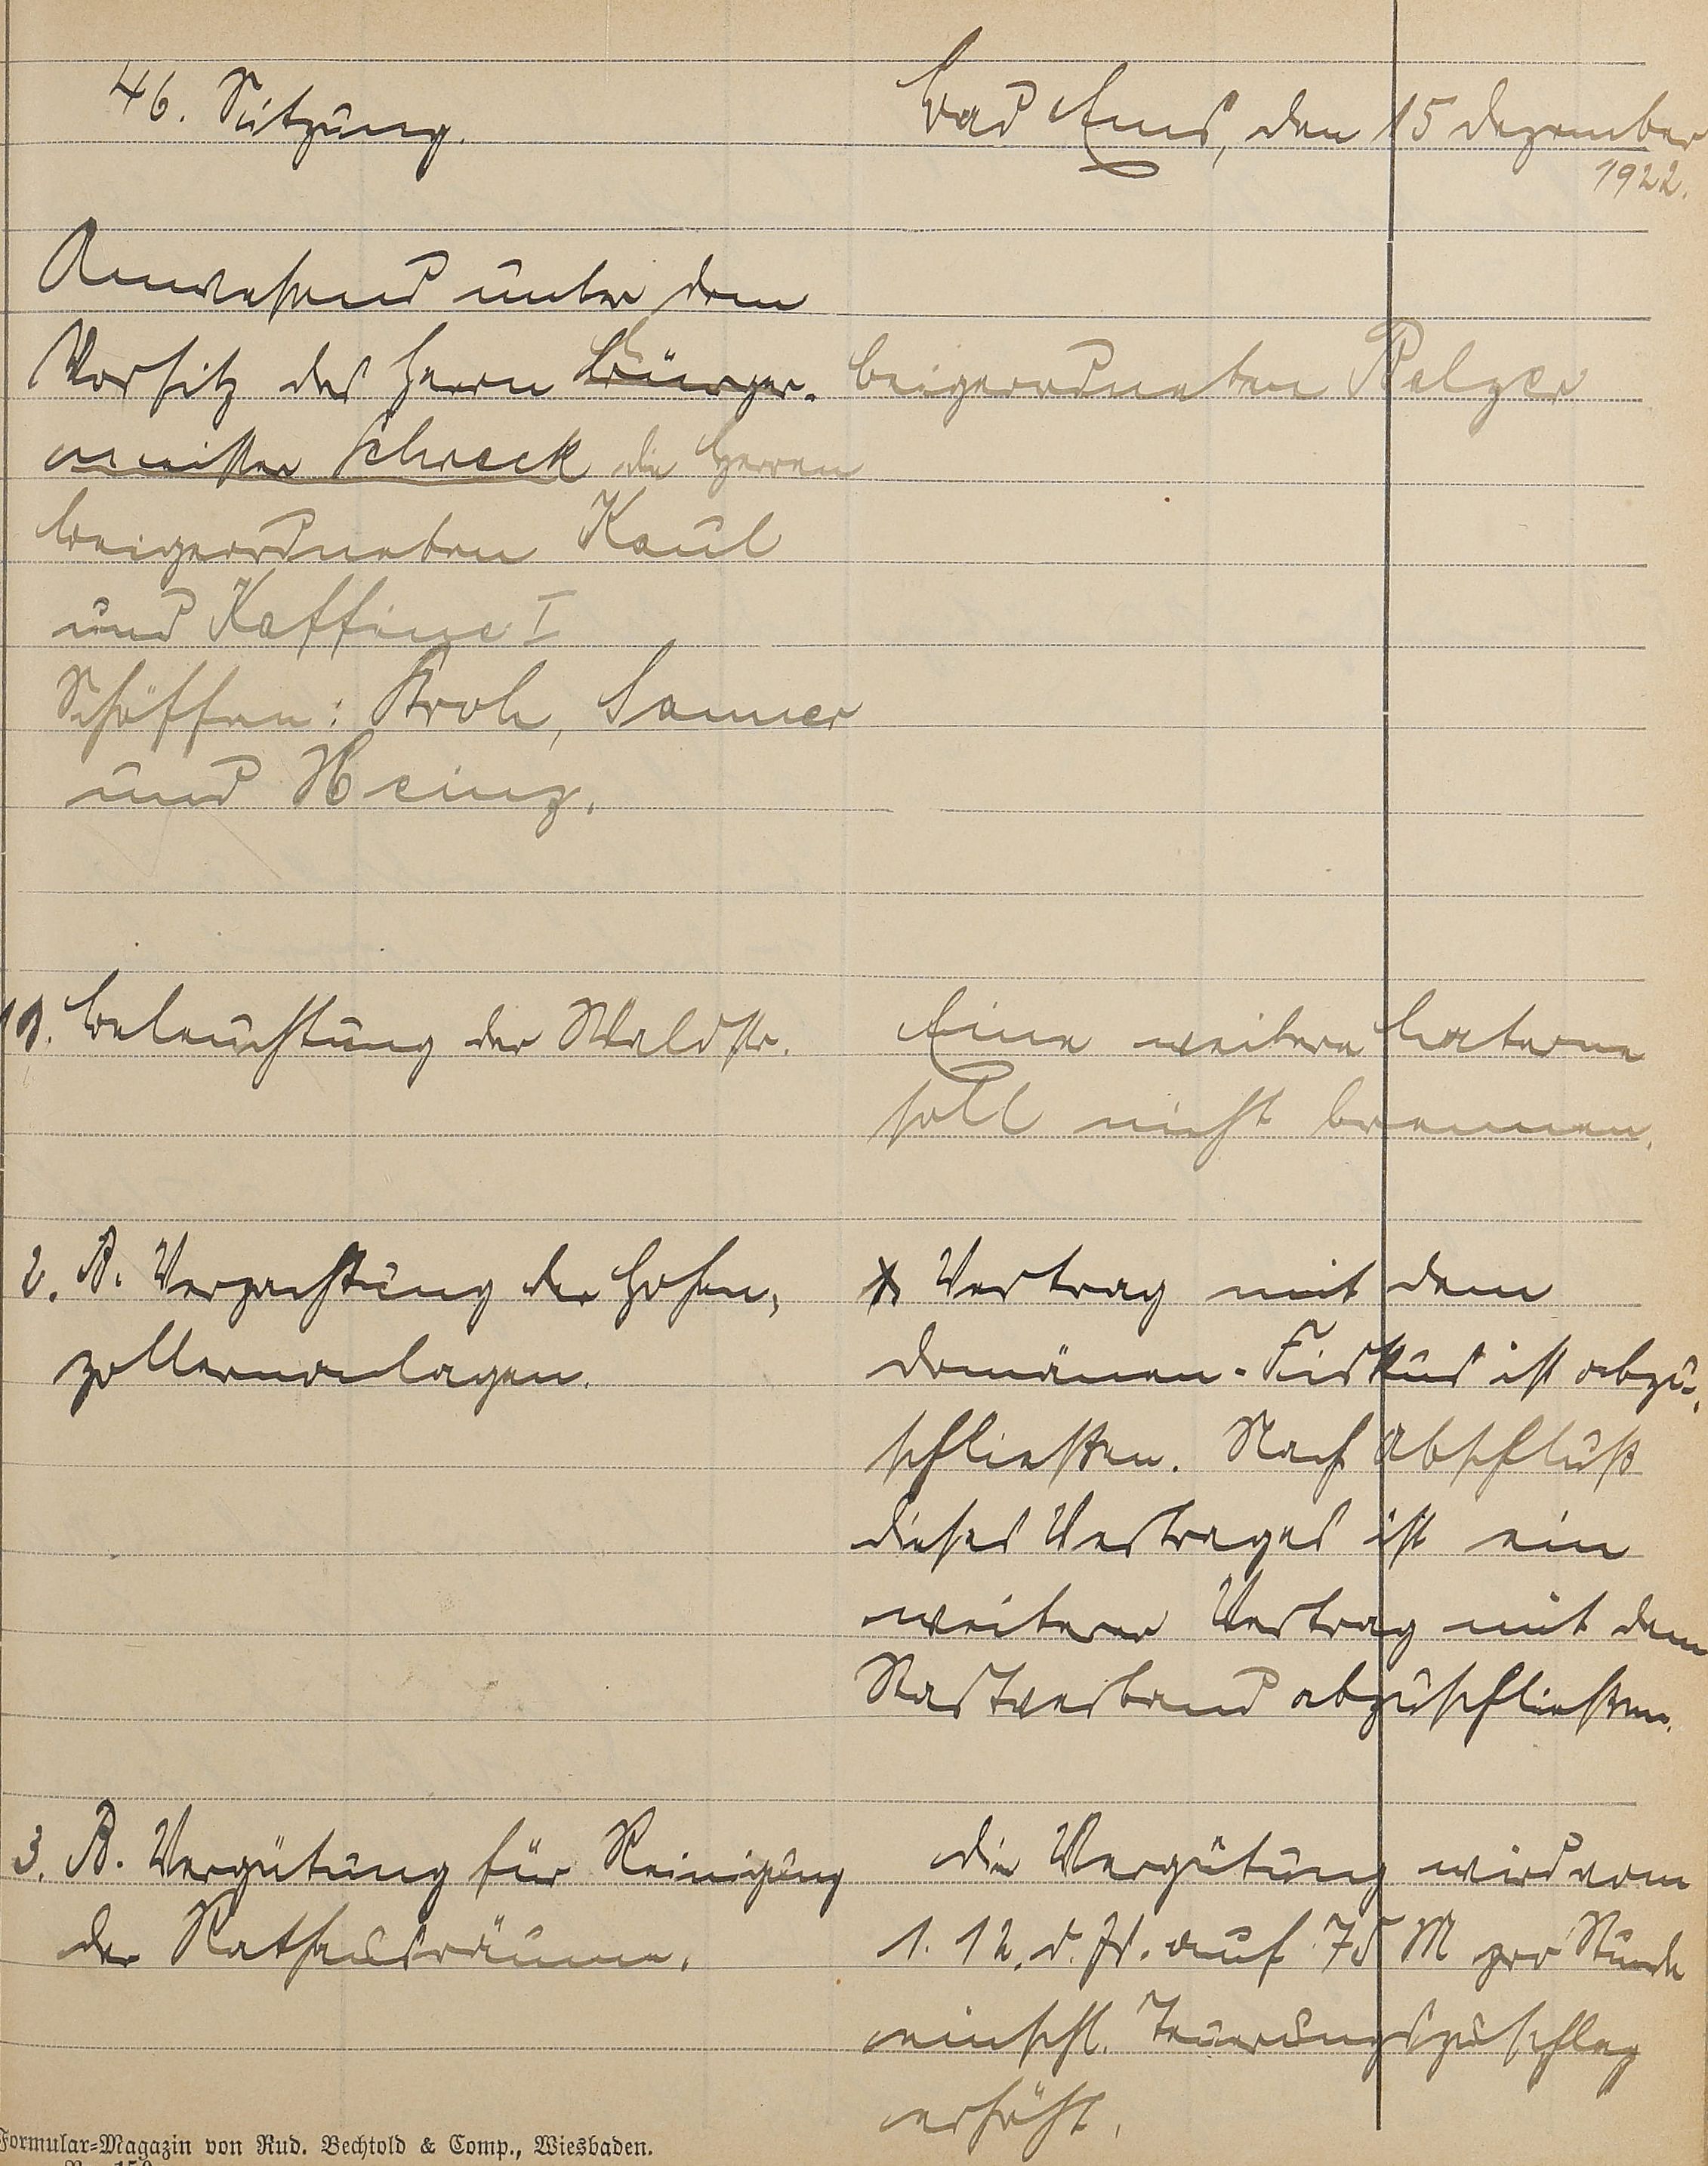 46. Sitzung.
Bad Ems, den 15 Dezember
1922.
Anwesend unter dem
Vorsitz des Herrn Bürger-
meister Schreck die Herren
Beigeordneten Pelzer
Beigeordneten Kaul
und Kaffine I
Schöffen: Kroh, Sanner
und Heinz.
1. Beleuchtung der Waldstr.
Eine weitere Laterne
soll nicht brennen.
2. B. Verpachtung der Hohen-
zollernanlagen.
Vertrag mit dem
Domänen-Fiskus ist abzu-
schließen. Nach Abschluß
dieses Vertrages ist ein
weiterer Vertrag mit dem
abzuschließen.
3. B. Vergütung für Reinigung
der Rathausräume.
Die Vergütung wird vom
1. 12. d. Js. auf 75 M pro Stunde
einschl. Teuerungszuschlag
erhöht.
Formular-Magazin von Rud. Bechtold & Comp., Wiesbaden.